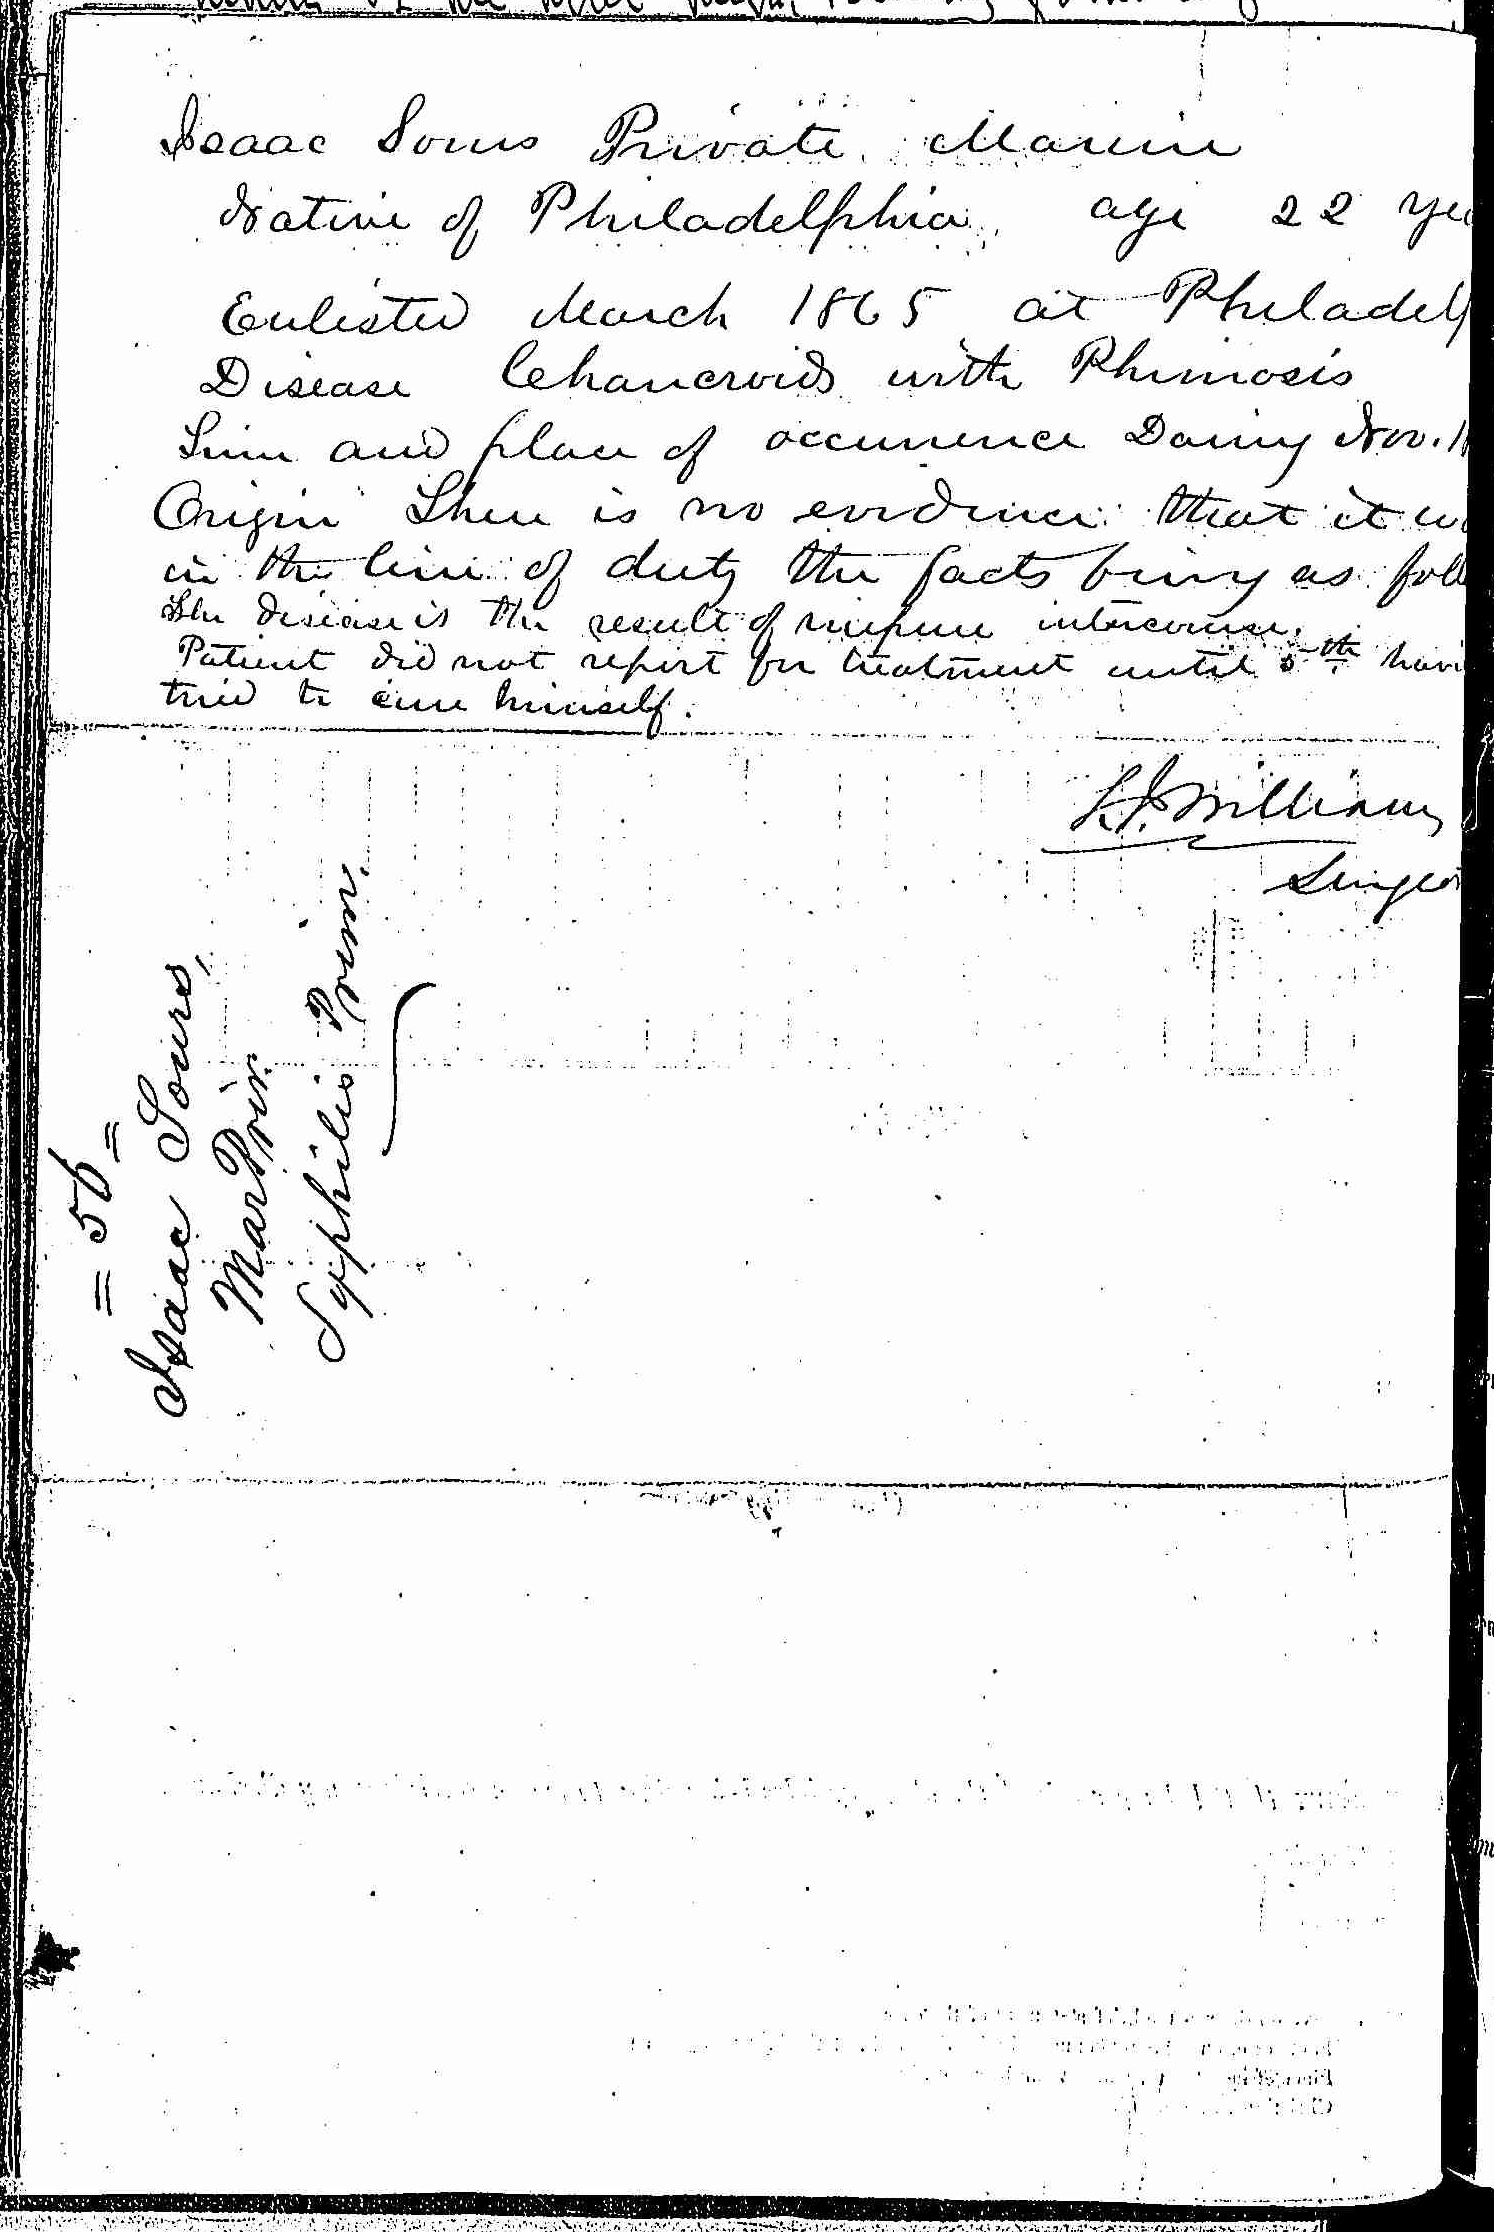 Isaac Sours Private Marine
Native of Philadelphia age 22 yea
Enlisted March 1865 at Philadelp
Disease Chancroids with Phimosis
Time and place of occurrence During Nov. 1
Origin There is no evidence that it w
in the line of duty the facts being as foll
The disease is the result of impure intercourse.
Patient did not report for treatment until 5th havi
tried to cure himself.
Williams
Surgeo
= 56 =
Isaac Sours,
Mar Priv.
Syphilis Prim.